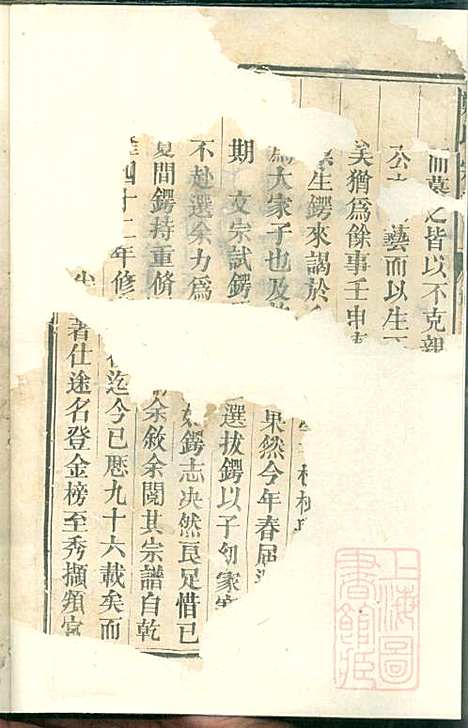 而莫之皆以不克親
公 藝而以生
矣猶爲餘事壬申
生鍔來謁於
大家子也及
期 文宗試鍔
不赴選余力爲
夏間鍔持重脩
四十二年修
果然今年春屆
選拔鍔以子幼家
鍔志决然良足惜已
余敘余閱其宗譜自乾
迄今已歷九十六載矣而
著仕途名登金榜至秀擷頖宮
上海圖
書館臧